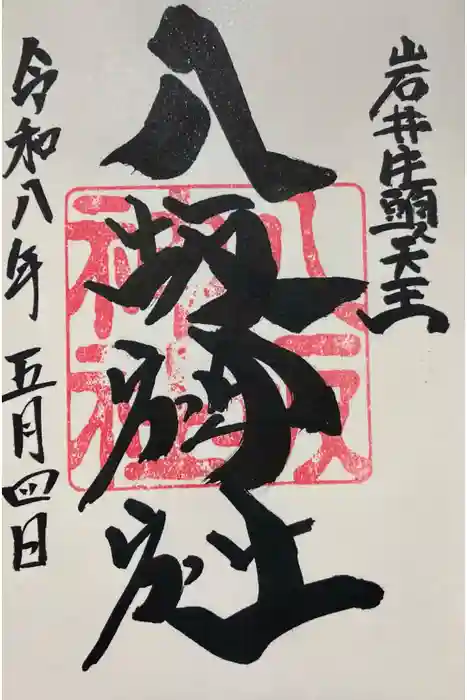 岩井牛頭天王
八坂神社
八坂神社
令和八年 五月四日